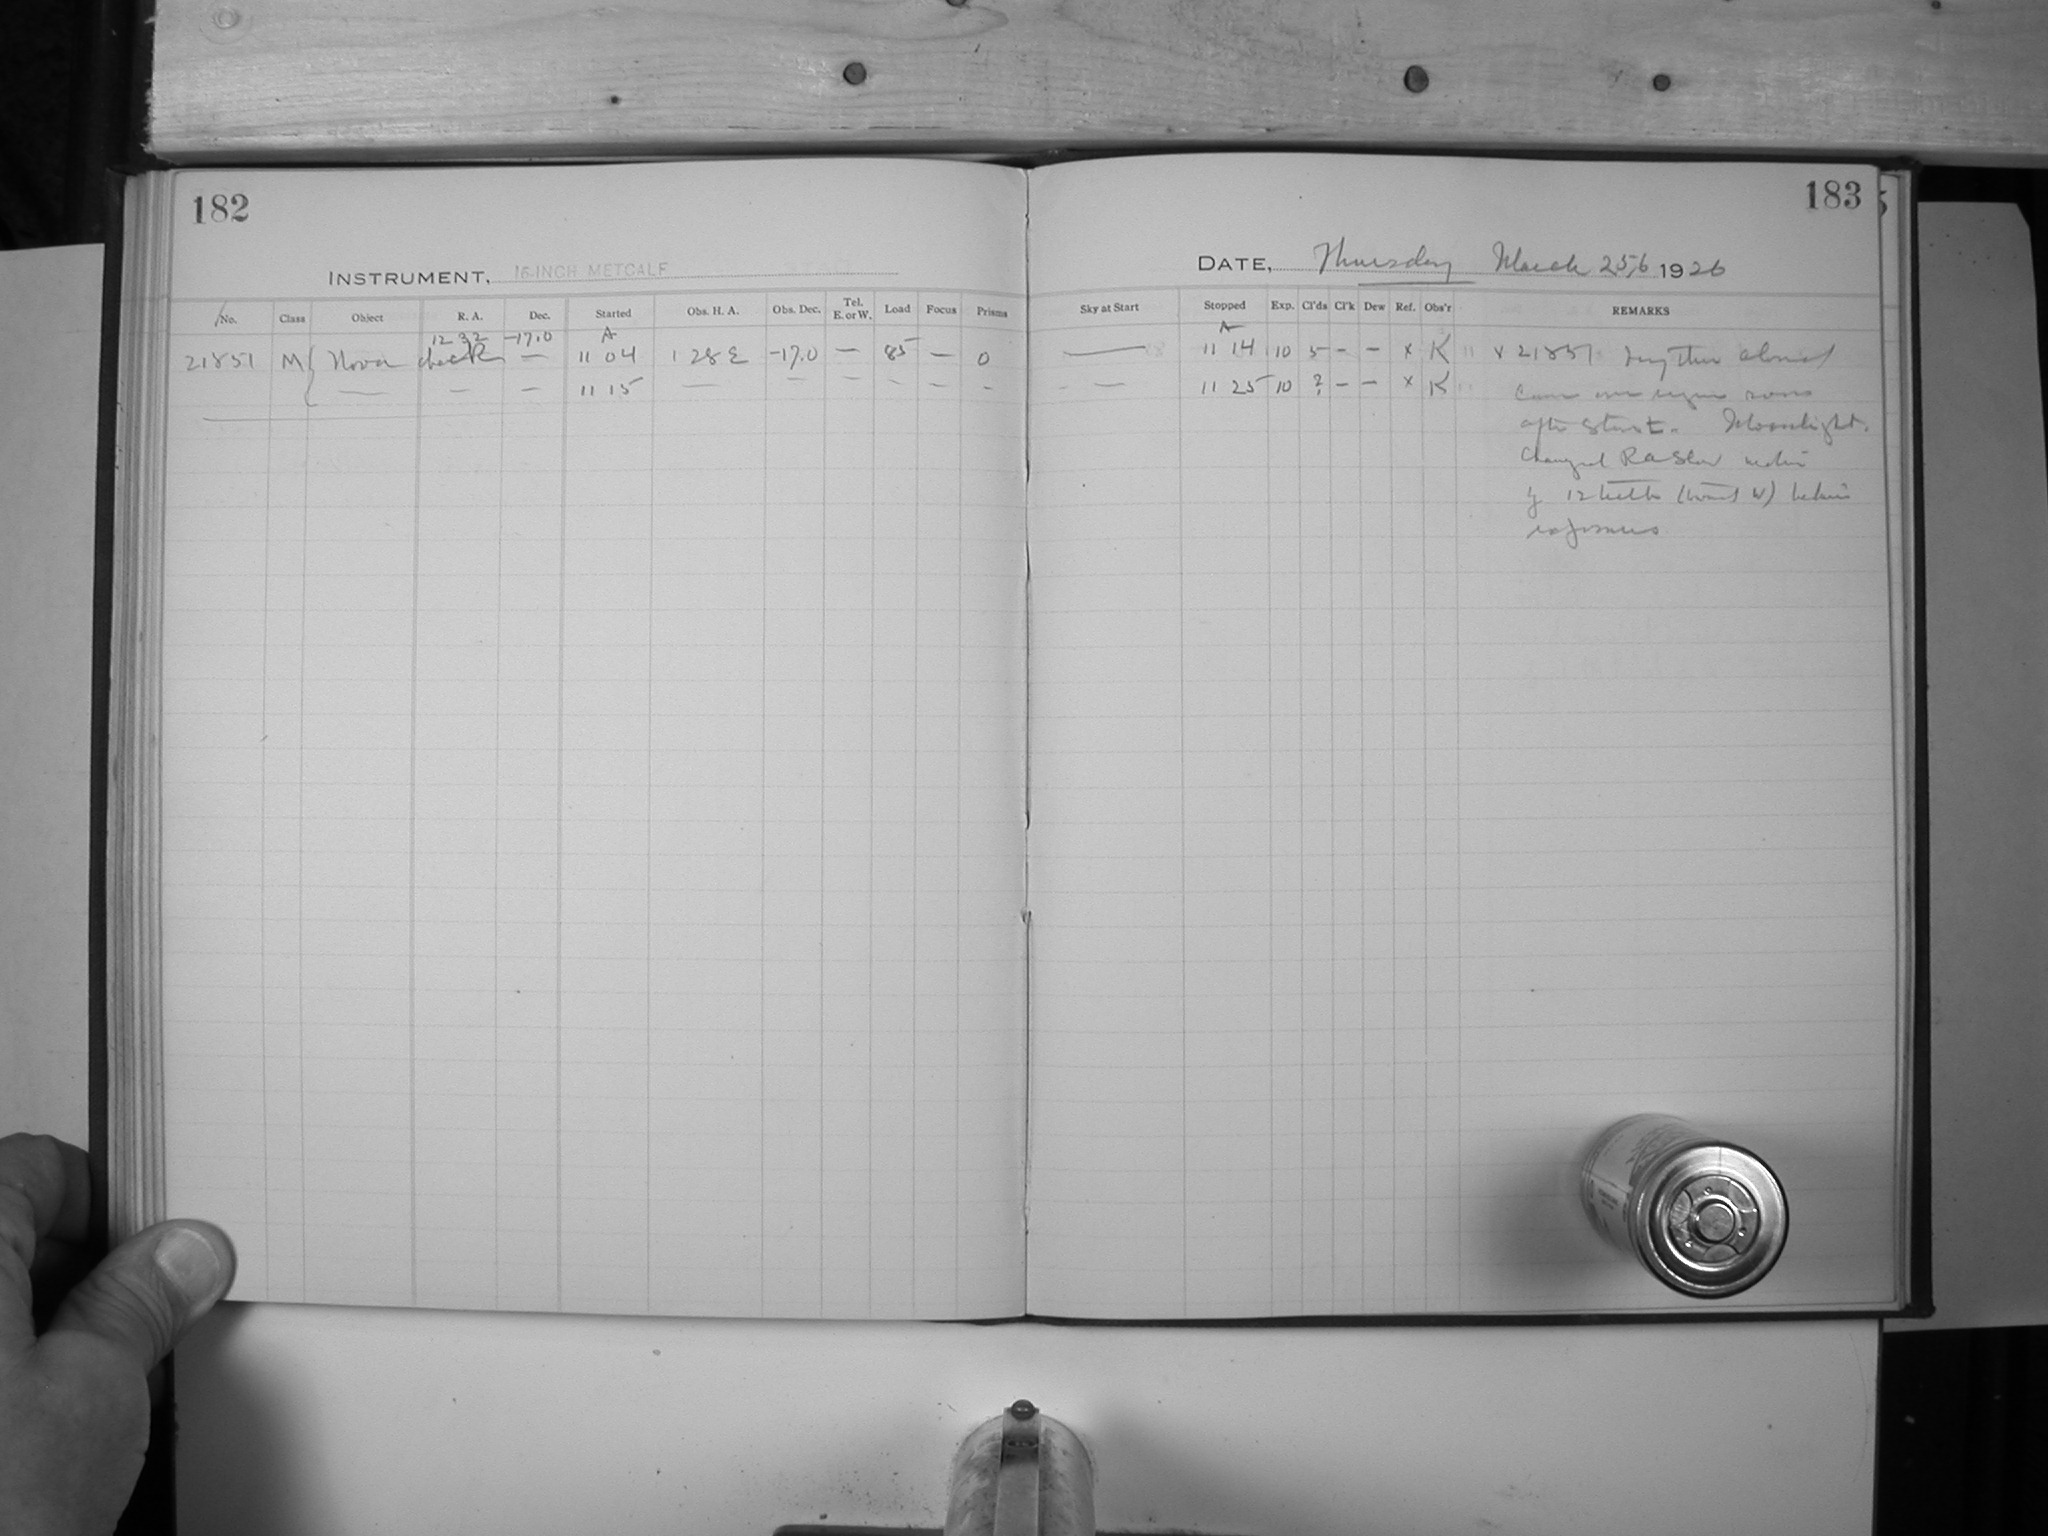 182
183
INSTRUMENT, 16-INCH METCALF
DATE, Thursday March 25,6 1926
No. Class Object R. A. Dec. Started Obs. H. A. Obs. Dec. Tel. E. or W. Load Focus Prisms
Sky at Start Stopped Exp. Cl'ds Cl'k Dew Ref. Obs'r REMARKS
12 32 -17.0 A
A
21851 M Nova check — 11 04 1 28 E -17.0 — 85 — 0
— 11 14 10 5 - - x K x 21851 Very thin clouds
— — — 11 15 — — — — — -
- — 11 25 10 ? - - x K came over region soon
after start. Moonlight.
Changed RA Slow motion
by 12 teeth (toward W) before
exposures